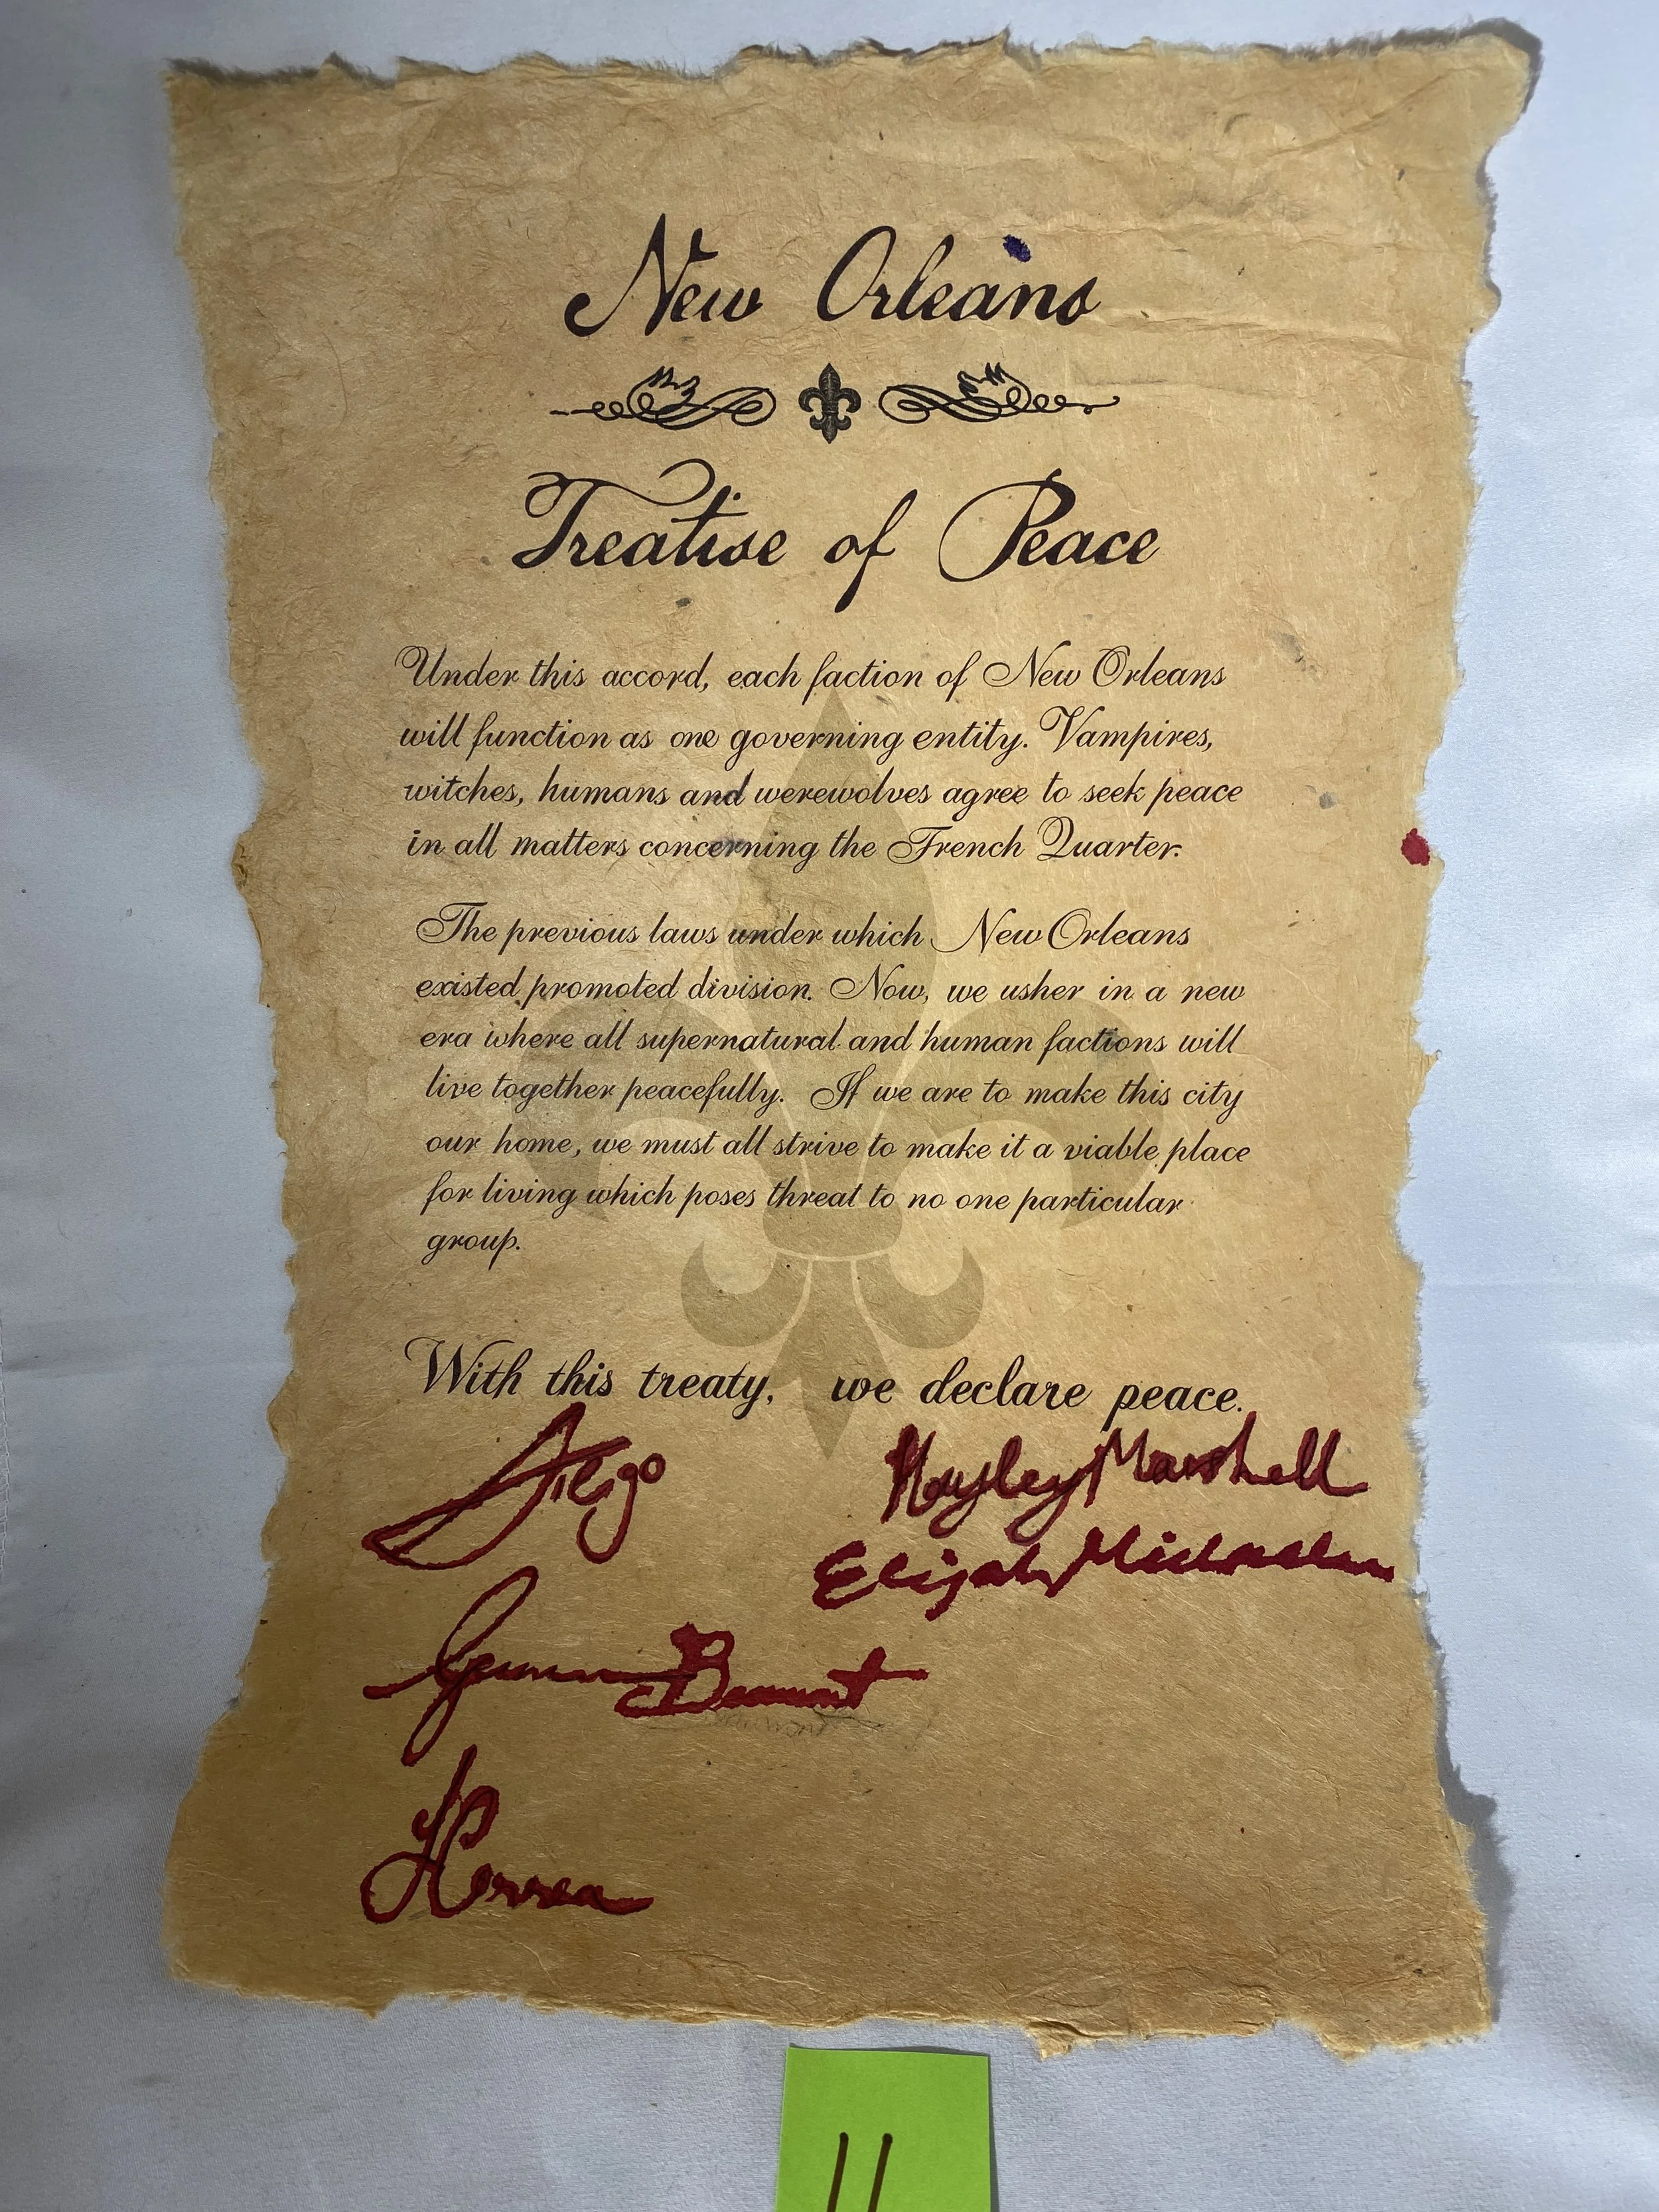 New Orleans
Treatise of Peace
Under this accord, each faction of New Orleans
will function as one governing entity. Vampires,
witches, humans and werewolves agree to seek peace
in all matters concerning the French Quarter.
The previous laws under which New Orleans
existed promoted division. Now, we usher in a new
era where all supernatural and human factions will
live together peacefully. If we are to make this city
our home, we must all strive to make it a viable place
for living which poses threat to no one particular
group.
With this treaty, we declare peace.
Diego
Hayley Marshall
Elijah Mikaelson
Correa
11